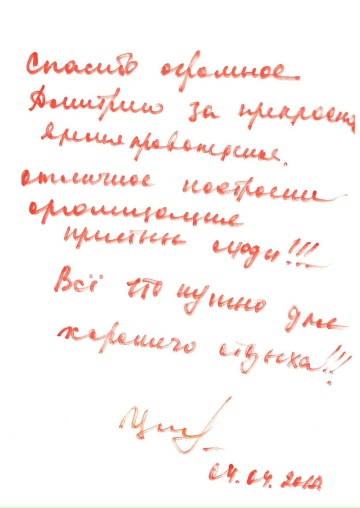 Спасибо огромное
Дмитрию за прекрасн
время провождение,
отличное настроение
организация
приятны люди!!!
Всё что нужно для
хорошего отдыха!!!
04.04.201